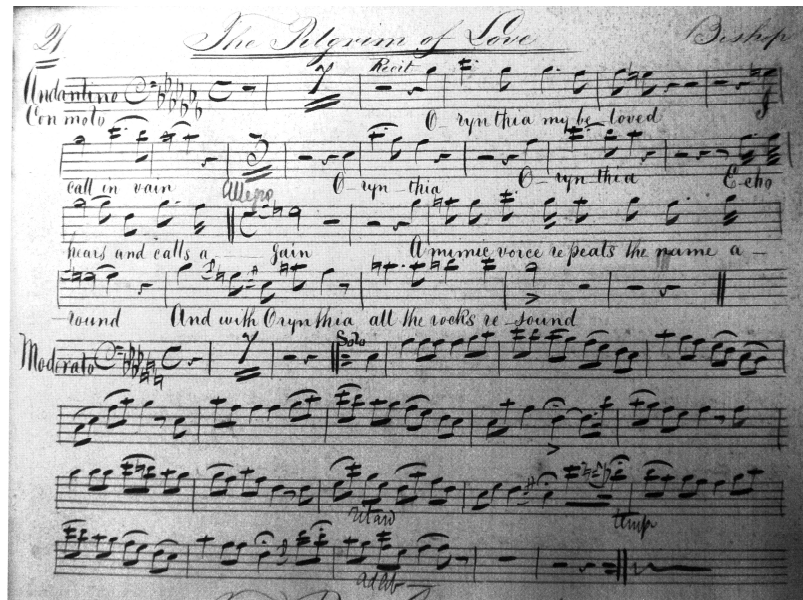 21 The Pilgrim of Love Bishop
Andantino Recit
Con moto O - rynthia my be - loved
call in vain Allegro O - ryn - thia O - ryn - thia Echo
hears and calls a - gain A mimic voice repeats the name a -
round And with Orynthia all the rocks re - sound
Moderato Solo
ritard tempo
adlib